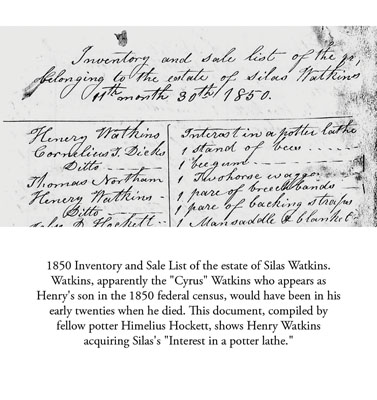 Inventory and sale list of the pr,
belonging to the estate of Silas Watkins
11th month 30th 1850.
Henery Watkins Interest in a potter lathe
Cornelius T. Dicks 1 stand of bees
Ditto 1 bee gum
Thomas Northam 1 Twohorse waggo
Henery Watkins 1 pare of breech bands
Ditto 1 pare of backing straps
Hockett 1 Mansaddle & blanket
1850 Inventory and Sale List of the estate of Silas Watkins.
Watkins, apparently the "Cyrus" Watkins who appears as
Henry's son in the 1850 federal census, would have been in his
early twenties when he died. This document, compiled by
fellow potter Himelius Hockett, shows Henry Watkins
acquiring Silas's "Interest in a potter lathe."